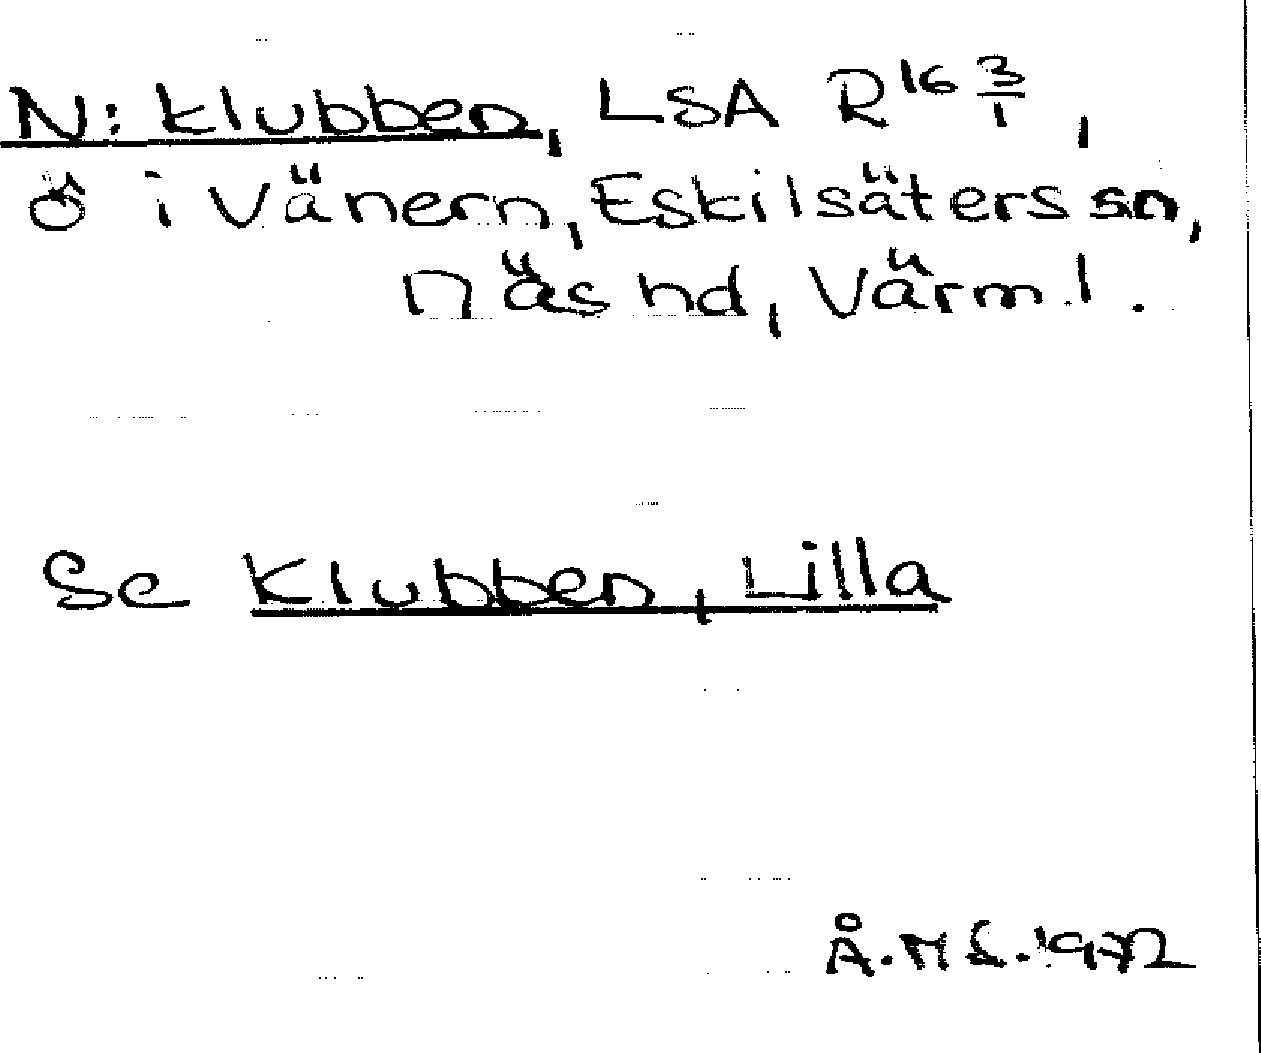 N: Klubben, LSA R16 3/1,
ö i Vänern, Eskilsäters sn,
Näs hd, Värml.
Se Klubben, Lilla
Å.M.S. 1972